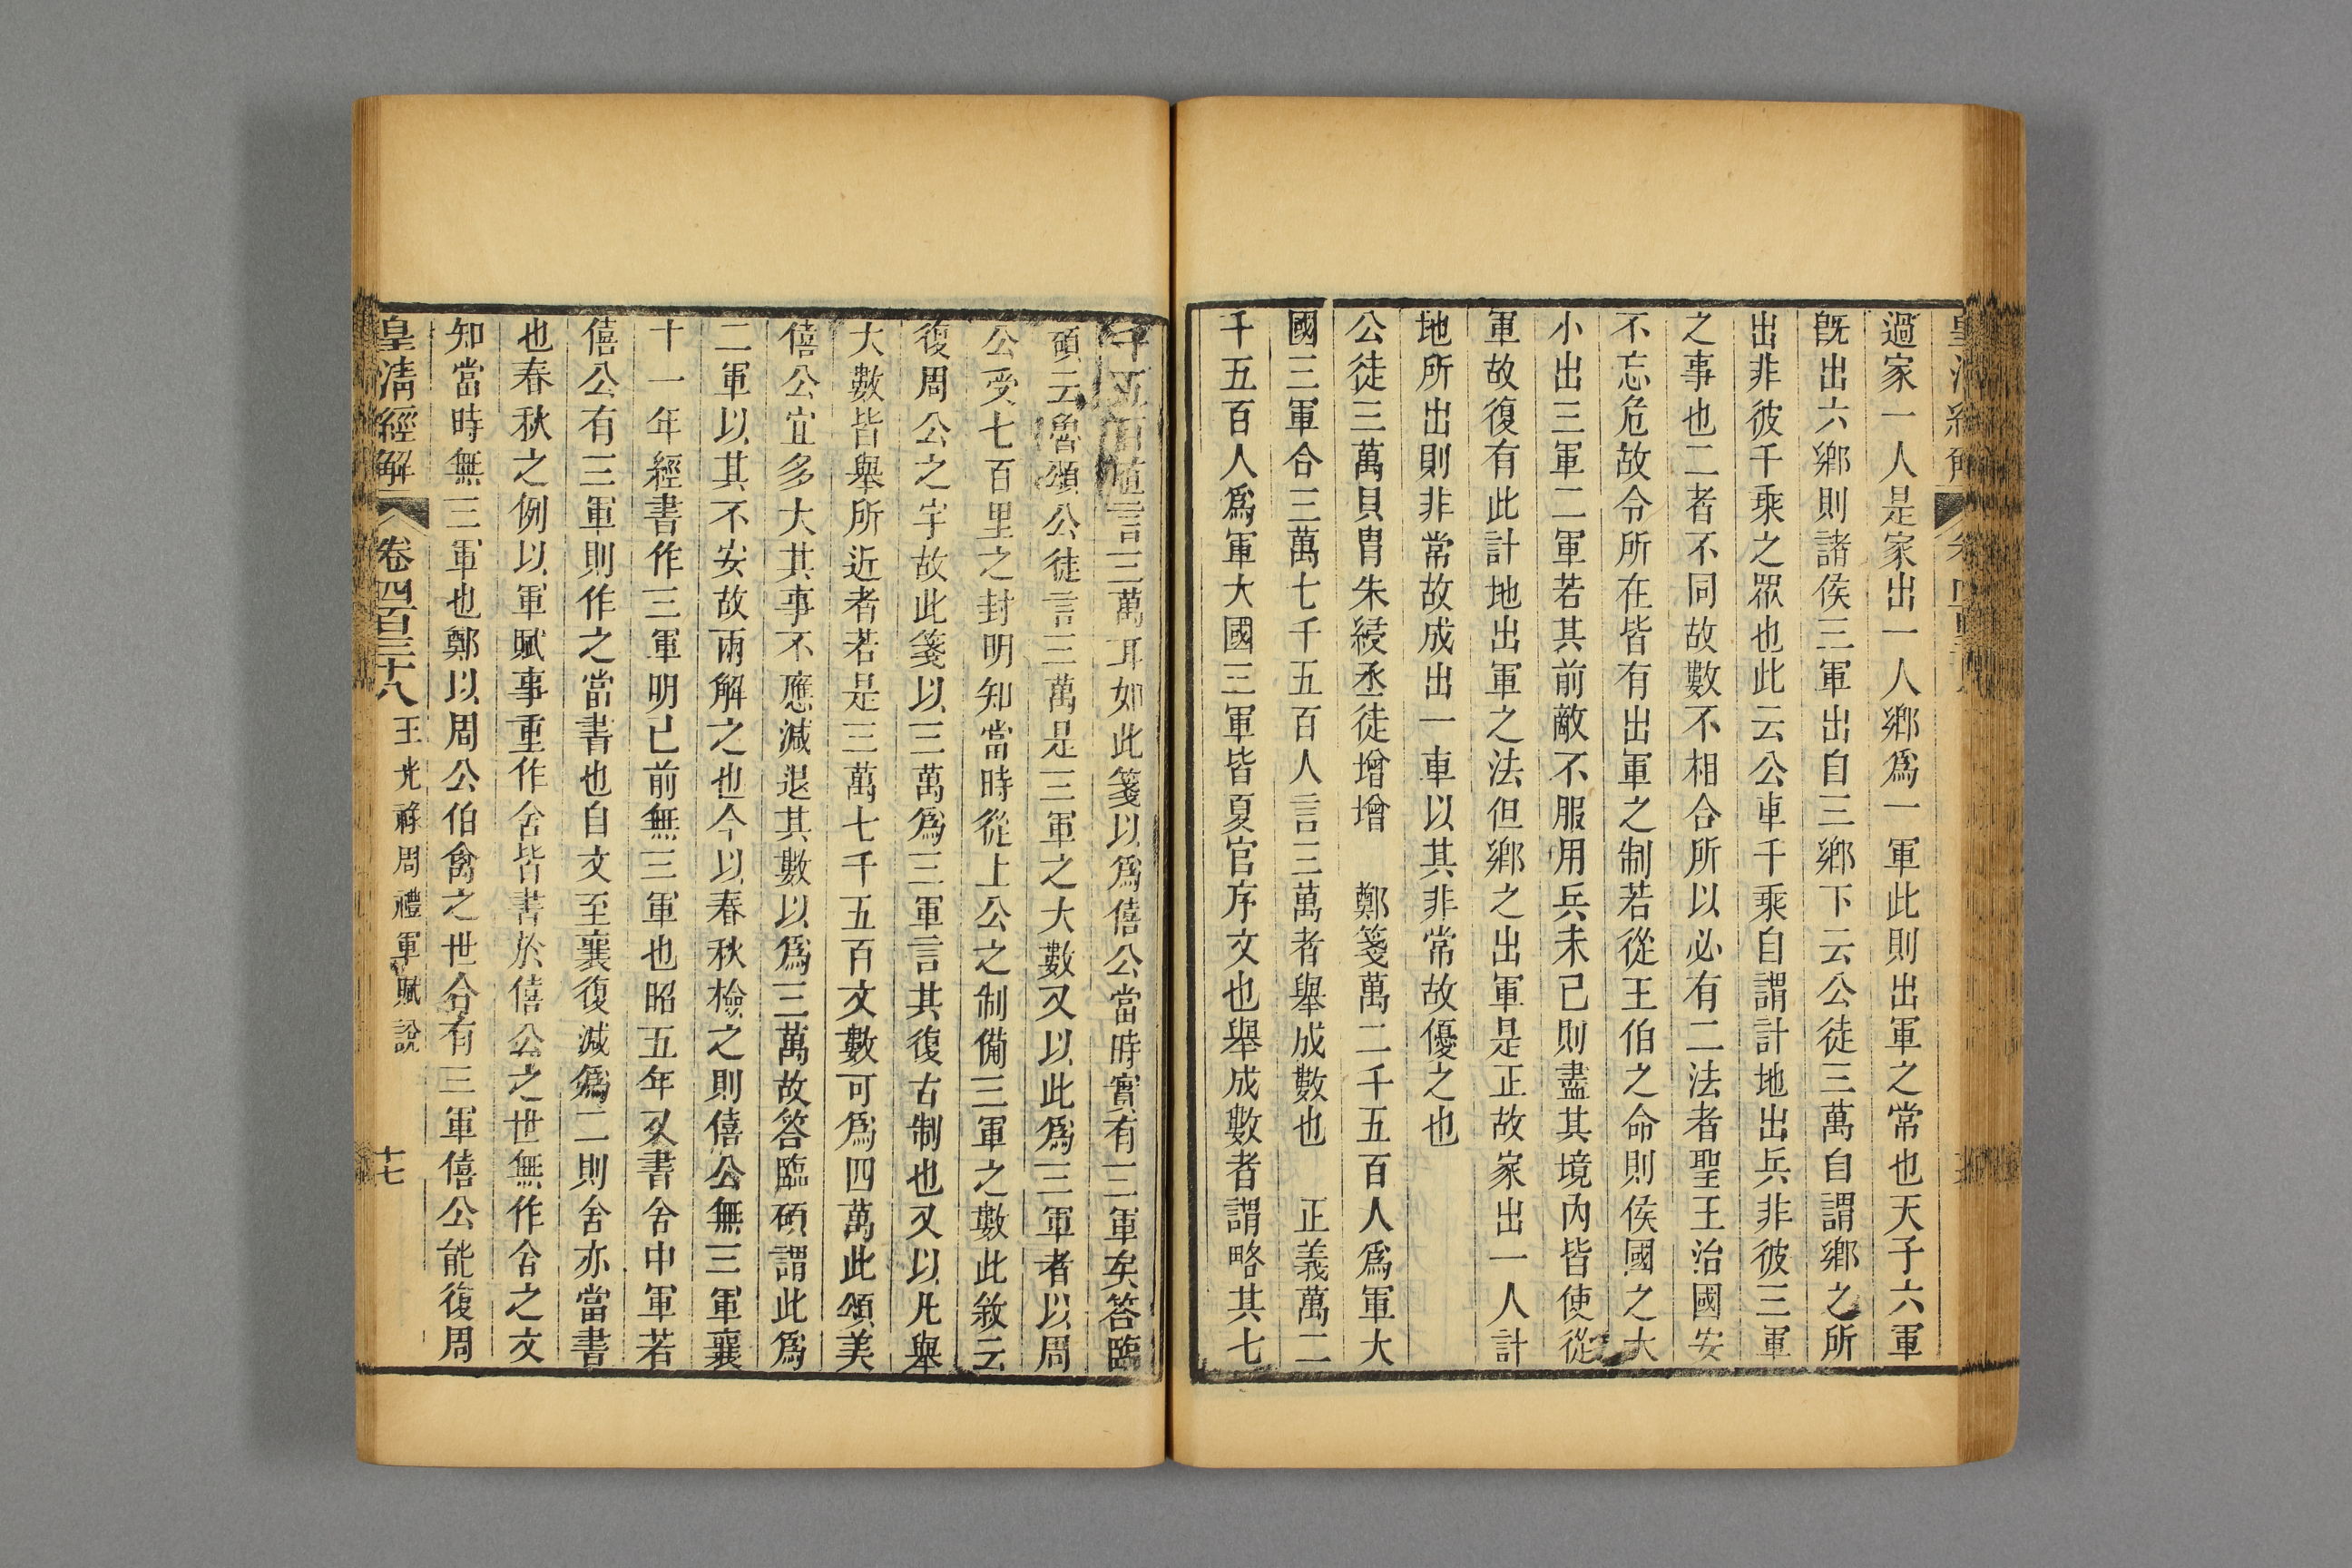 過家一人是家出一人鄉爲一軍此則出軍之常也天子六軍
旣出六鄉則諸侯三軍出自三鄉下云公徒三萬自謂鄉之所
出非彼千乘之眾也此云公車千乘自謂計地出兵非彼三軍
之事也二者不同故數不相合所以必有二法者聖王治國安
不忘危故令所在皆有出軍之制若從王伯之命則侯國之大
小出三軍二軍若其前敵不服用兵未已則盡其境內皆使從
軍故復有此計地出軍之法但鄉之出軍是正故家出一人計
地所出則非常故成出一車以其非常故優之也
公徒三萬貝冑朱綅烝徒增增 鄭箋萬二千五百人爲軍大
國三軍合三萬七千五百人言三萬者舉成數也 正義萬二
千五百人爲軍大國三軍皆夏官序文也舉成數者謂略其七
千五百直言三萬耳如此箋以爲僖公當時實有三軍矣答臨
碩云魯頌公徒言三萬是三軍之大數又以此爲三軍者以周
公受七百里之封明知當時從上公之制備三軍之數此敘云
復周公之宇故此箋以三萬爲三軍言其復古制也又以凡舉
大數皆舉所近者若是三萬七千五百文數可爲四萬此頌美
僖公宜多大其事不應減退其數以爲三萬故答臨碩謂此爲
二軍以其不安故兩解之也今以春秋檢之則僖公無三軍襄
十一年經書作三軍明已前無三軍也昭五年又書舍中軍若
僖公有三軍則作之當書也自文至襄復減爲二則舍亦當書
也春秋之例以軍賦事重作舍皆書於僖公之世無作舍之文
知當時無三軍也鄭以周公伯禽之世合有三軍僖公能復周
皇清經解 卷四百三十八 王光祿周禮軍賦說 十七